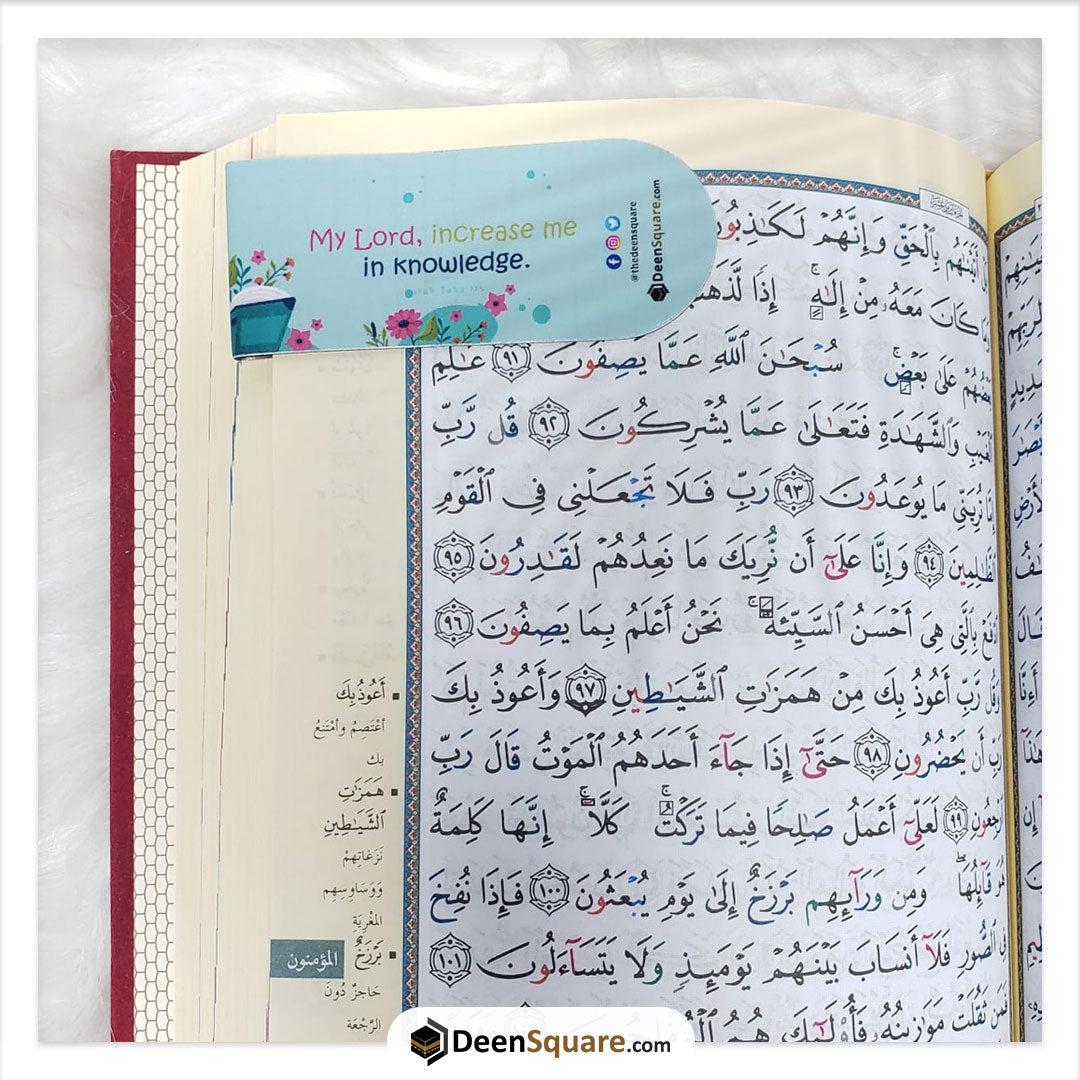 My Lord, increase me
in knowledge.
Surah Taha 115
@thedeensquare
DeenSquare.com
بِٱلْحَقِّ وَإِنَّهُمْ لَكَـٰذِبُونَ
كَانَ مَعَهُۥ مِنْ إِلَـٰهٍ ۚ إِذًا لَّذَهَبَ
عَلَىٰ بَعْضٍ ۚ سُبْحَـٰنَ ٱللَّهِ عَمَّا يَصِفُونَ ٩١ عَـٰلِمِ
ٱلْغَيْبِ وَٱلشَّهَـٰدَةِ فَتَعَـٰلَىٰ عَمَّا يُشْرِكُونَ ٩٢ قُل رَّبِّ
إِمَّا تُرِيَنِّى مَا يُوعَدُونَ ٩٣ رَبِّ فَلَا تَجْعَلْنِى فِى ٱلْقَوْمِ
ٱلظَّـٰلِمِينَ ٩٤ وَإِنَّا عَلَىٰٓ أَن نُّرِيَكَ مَا نَعِدُهُمْ لَقَـٰدِرُونَ ٩٥
ٱدْفَعْ بِٱلَّتِى هِىَ أَحْسَنُ ٱلسَّيِّئَةَ ۚ نَحْنُ أَعْلَمُ بِمَا يَصِفُونَ ٩٦
وَقُل رَّبِّ أَعُوذُ بِكَ مِنْ هَمَزَٰتِ ٱلشَّيَـٰطِينِ ٩٧ وَأَعُوذُ بِكَ
رَبِّ أَن يَحْضُرُونِ ٩٨ حَتَّىٰٓ إِذَا جَآءَ أَحَدَهُمُ ٱلْمَوْتُ قَالَ رَبِّ
ٱرْجِعُونِ ٩٩ لَعَلِّىٓ أَعْمَلُ صَـٰلِحًا فِيمَا تَرَكْتُ ۚ كَلَّآ ۚ إِنَّهَا كَلِمَةٌ
هُوَ قَآئِلُهَا ۖ وَمِن وَرَآئِهِم بَرْزَخٌ إِلَىٰ يَوْمِ يُبْعَثُونَ ١٠٠ فَإِذَا نُفِخَ
فِى ٱلصُّورِ فَلَآ أَنسَابَ بَيْنَهُمْ يَوْمَئِذٍ وَلَا يَتَسَآءَلُونَ ١٠١
فَمَن ثَقُلَتْ مَوَٰزِينُهُۥ فَأُو۟لَـٰٓئِكَ هُمُ
أَعُوذُ بِكَ
أعْتَصِمُ وأمْتَنِعُ
بك
هَمَزَٰتِ
ٱلشَّيَـٰطِينِ
نَزَغَاتِهِمْ
وَوَسَاوِسِهِم
المُغْرِيَةِ
بَرْزَخٌ
حَاجِزٌ دُونَ
الرَّجْعَة
المؤمنون
DeenSquare.com